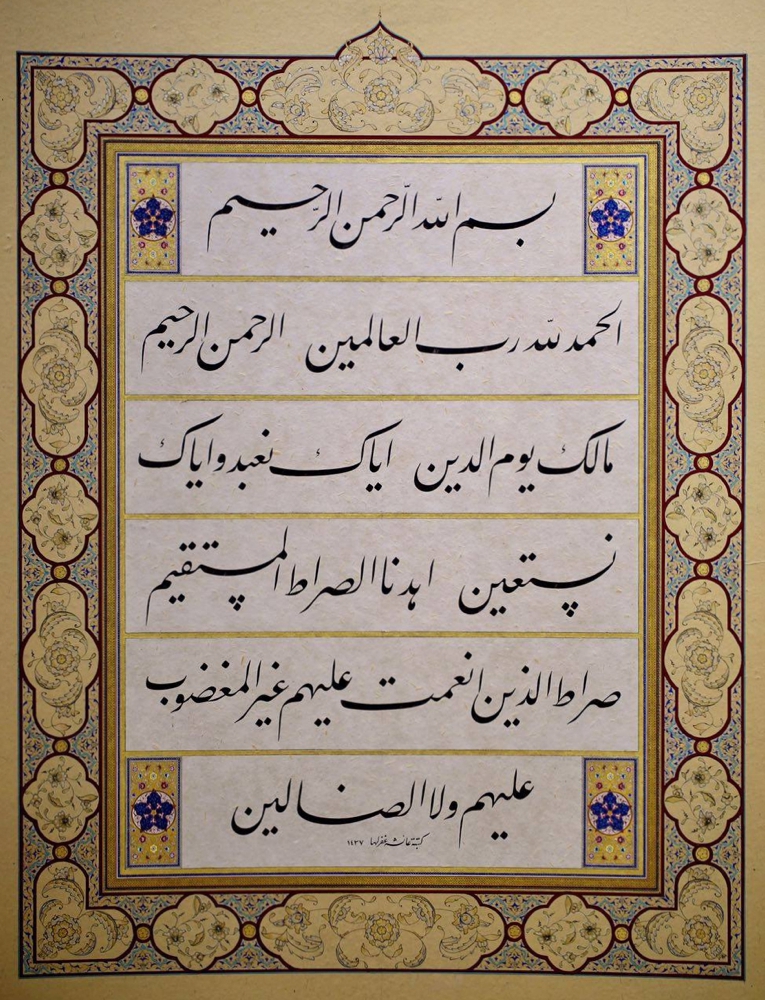 بسم الله الرحمن الرحيم
الحمد لله رب العالمين الرحمن الرحيم
مالك يوم الدين اياك نعبد واياك
نستعين اهدنا الصراط المستقيم
صراط الذين انعمت عليهم غير المغضوب
عليهم ولا الضالين
كتبته عائشه غفرلها ١٤٣٧